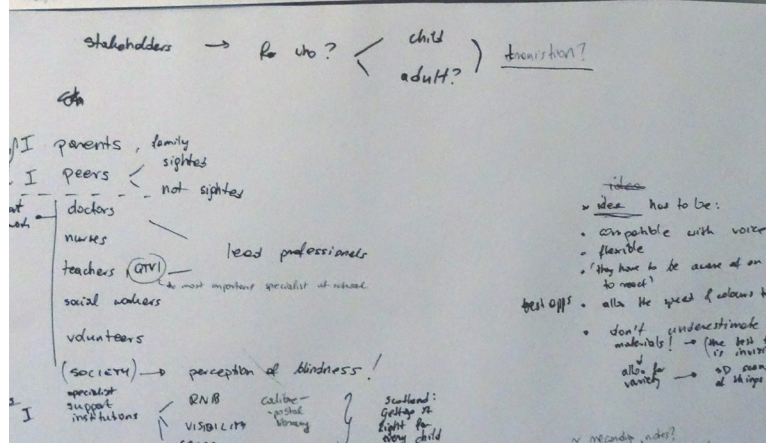 stakeholders → for who? < child
adult? ) transition?
I parents, family
I peers < sighted
not sighted
doctors
nurses
lead professionals
teachers (QTVI)
↳ most important specialist at school
social workers
volunteers
(SOCIETY) → perception of blindness!
specialist
support
institutions
I
RNIB
VISIBILITY
calibre -
- postal
library
Scotland:
Getting it
right for
every child
idea
* idea has to be:
• compatible with voice
• flexible
• 'they have to be aware of
to react'
best apps • allow the speed & colours
• don't underestimate
materials! → (the best
is
allow for
variety → 3D
of things